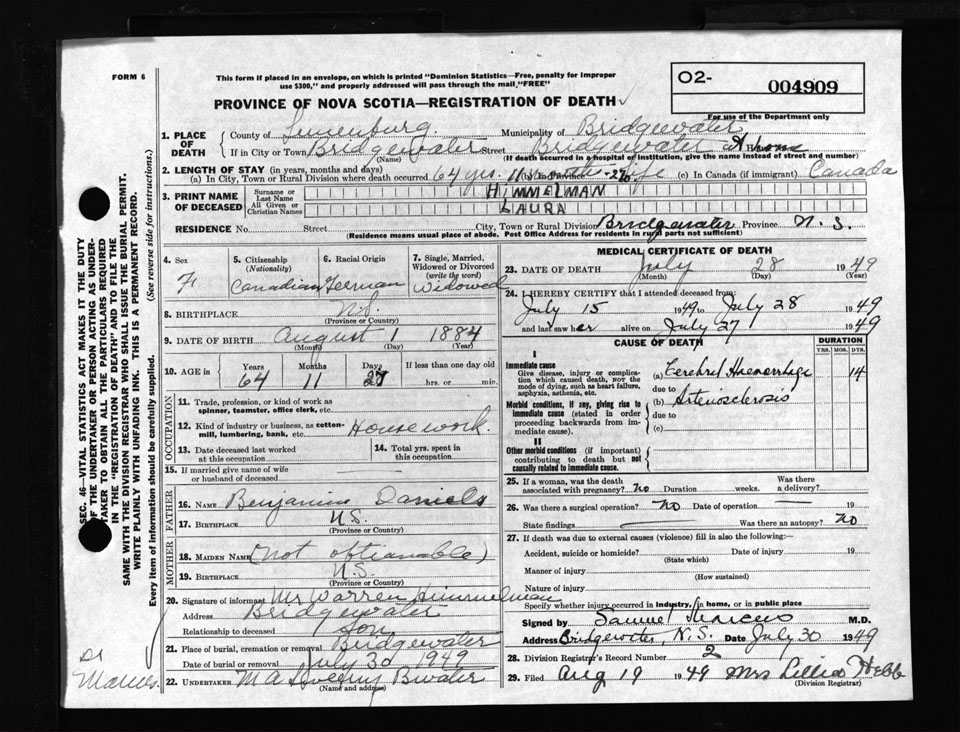 FORM 6
This form if placed in an envelope, on which is printed "Dominion Statistics—Free, penalty for improper
use $300," and properly addressed will pass through the mail "FREE"
O2-
004909
For use of the Department only
PROVINCE OF NOVA SCOTIA—REGISTRATION OF DEATH
1. PLACE OF DEATH
County of Lunenburg Municipality of Bridgewater
If in City or Town Bridgewater (Name) Street Bridgewater at Home
(If death occurred in a hospital or institution, give the name instead of street and number)
2. LENGTH OF STAY (in years, months and days)
(a) In City, Town or Rural Division where death occurred 64 yrs. 11 (b) In Province life (c) In Canada (if immigrant) Canada
3. PRINT NAME OF DECEASED
Surname or Last Name HIMMELMAN
All Given or Christian Names LAURA
RESIDENCE No. Street City, Town or Rural Division Bridgewater Province N. S.
(Residence means usual place of abode. Post Office Address for residents in rural parts not sufficient)
4. Sex F
5. Citizenship (Nationality) Canadian
6. Racial Origin German
7. Single, Married, Widowed or Divorced (write the word) Widowed
8. BIRTHPLACE N.S.
(Province or Country)
9. DATE OF BIRTH August 1 1884
(Month) (Day) (Year)
10. AGE in Years 64 Months 11 Days 27 If less than one day hrs. or min.
OCCUPATION
11. Trade, profession or kind of work as spinner, teamster, office clerk, etc.
12. Kind of industry or business, as cotton-mill, lumbering, bank, etc. Housework
13. Date deceased last worked at this occupation
14. Total yrs. spent in this occupation.
15. If married give name of wife or husband of deceased
FATHER
16. NAME Benjamin Daniels
17. BIRTHPLACE N.S.
(Province or Country)
MOTHER
18. MAIDEN NAME (not obtianable)
19. BIRTHPLACE N.S.
(Province or Country)
20. Signature of informant Mr Warren Himmelman
Address Bridgewater
Relationship to deceased Son
21. Place of burial, cremation or removal Bridgewater
Date of burial or removal July 30 1949
22. UNDERTAKER M A B'water
(Name and address)
MEDICAL CERTIFICATE OF DEATH
23. DATE OF DEATH July 28 1949
(Month) (Day) (Year)
24. I HEREBY CERTIFY that I attended deceased from:
July 15 1949 to July 28 1949
and last saw her alive on July 27 1949
CAUSE OF DEATH
DURATION
YRS. MOS. DYS.
I
Immediate cause
Give disease, injury or complication which caused death, NOT the mode of dying, such as heart failure, asphyxia, asthenia, etc.
(a) Cerebral Haemorrhage 14
due to
Morbid conditions, if any, giving rise to immediate cause (stated in order proceeding backwards from immediate cause).
(b) Arteriosclerosis
due to
(c)
II
Other morbid conditions (if important) contributing to death but not causally related to immediate cause.
25. If a woman, was the death associated with pregnancy? no Duration weeks. Was there a delivery?
26. Was there a surgical operation? no Date of operation 19
State findings Was there an autopsy? no
27. If death was due to external causes (violence) fill in also the following:—
Accident, suicide or homicide? Date of injury 19
(State which)
Manner of injury
(How sustained)
Nature of injury
Specify whether injury occurred in industry, in home, or in public place
Signed by Samuel Marcus M.D.
Address Bridgewater, N.S. Date July 30 1949
28. Division Registrar's Record Number 2
29. Filed Aug 19 1949 Mrs Lillian Hebb
(Division Registrar)
SEC. 46—VITAL STATISTICS ACT MAKES IT THE DUTY
OF THE UNDERTAKER OR PERSON ACTING AS UNDER-
TAKER TO OBTAIN ALL THE PARTICULARS REQUIRED
IN THE "REGISTRATION OF DEATH" AND TO FILE THE
SAME WITH THE DIVISION REGISTRAR WHO SHALL ISSUE THE BURIAL PERMIT.
WRITE PLAINLY WITH UNFADING INK. THIS IS A PERMANENT RECORD.
Every item of information should be carefully supplied. (See reverse side for instructions.)
Dr Marcus.